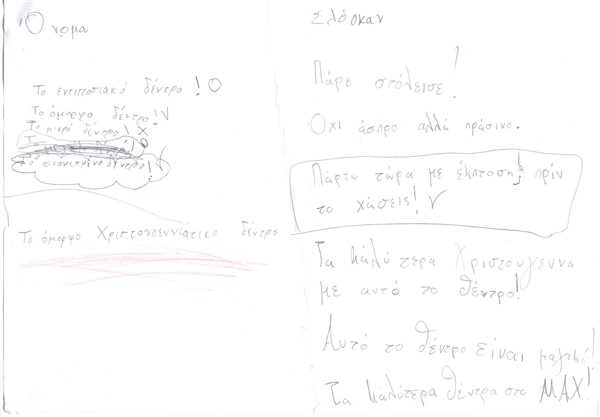 Όνομα
Το ενιστοπιακό δέντρο! Ο
Το όμορφο δέντρο! V
Το μικρό δέντρο! X
Το χιονισμένο δέντρο! V
Το όμορφο Χριστουγεννιάτικο δέντρο
Σλόσκαν
Πάρε στόλεισε!
Όχι άσπρο αλλά πράσινο.
Πάρτω τώρα με έκπτοση! πρίν
το χάσεις! V
Τα καλύτερα Χριστούγεννα
με αυτό το θέντρο!
Αυτό το θέντρο είναι μαγικό!
Τα καλύτερα θέντρα στο MAX!